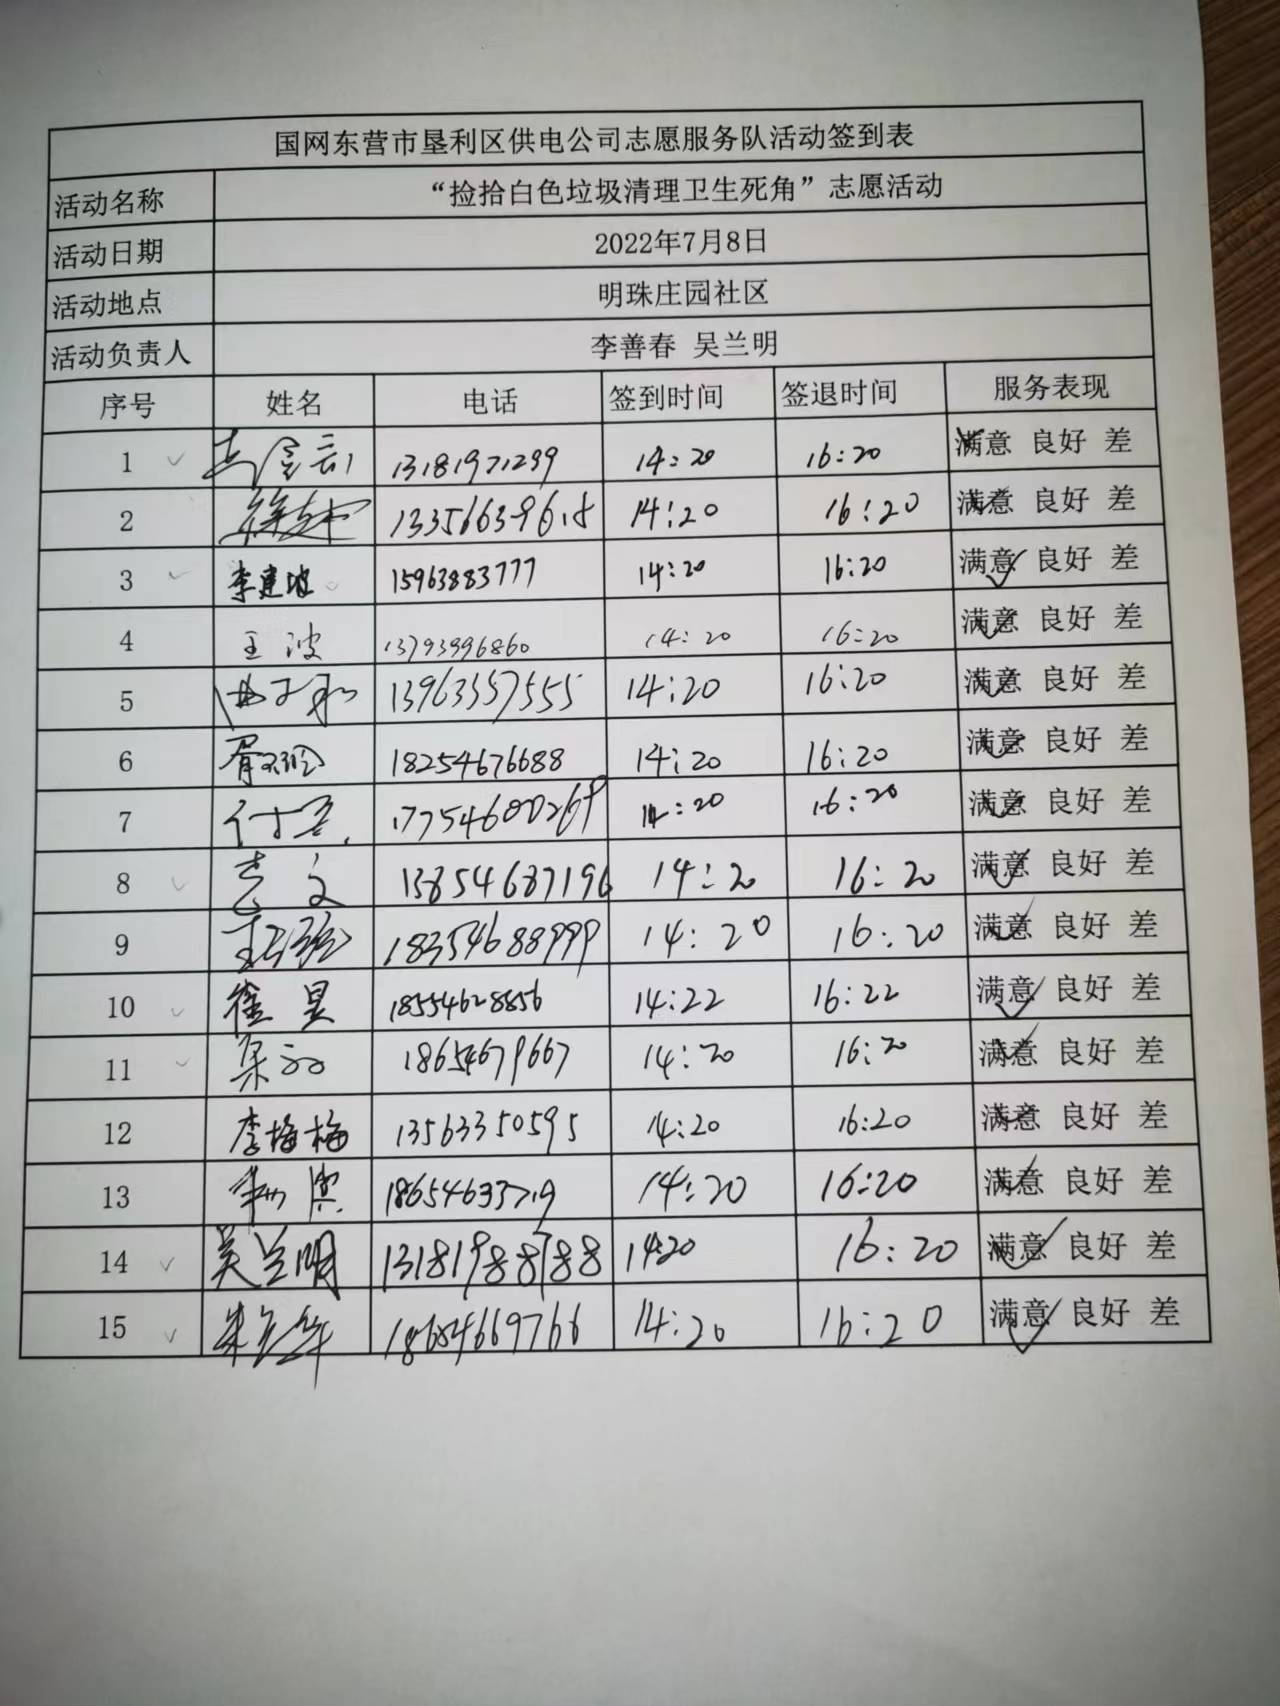 国网东营市垦利区供电公司志愿服务队活动签到表
活动名称 “捡拾白色垃圾清理卫生死角”志愿活动
活动日期 2022年7月8日
活动地点 明珠庄园社区
活动负责人 李善春 吴兰明
序号 姓名 电话 签到时间 签退时间 服务表现
1 13181971299 14:20 16:20 满意 良好 差
2 14:20 16:20 满意 良好 差
3 李建坡 15963883777 14:20 16:20 满意 良好 差
4 王波 13793996860 14:20 16:20 满意 良好 差
5 13963357555 14:20 16:20 满意 良好 差
6 18254676688 14:20 16:20 满意 良好 差
7 17754600269 14:20 16:20 满意 良好 差
8 13854687196 14:20 16:20 满意 良好 差
9 18354688999 14:20 16:20 满意 良好 差
10 18554628856 14:22 16:22 满意 良好 差
11 18654679667 14:20 16:20 满意 良好 差
12 李梅梅 13563350595 14:20 16:20 满意 良好 差
13 14:20 16:20 满意 良好 差
14 吴兰明 13181988788 14:20 16:20 满意 良好 差
15 18684669766 14:20 16:20 满意 良好 差